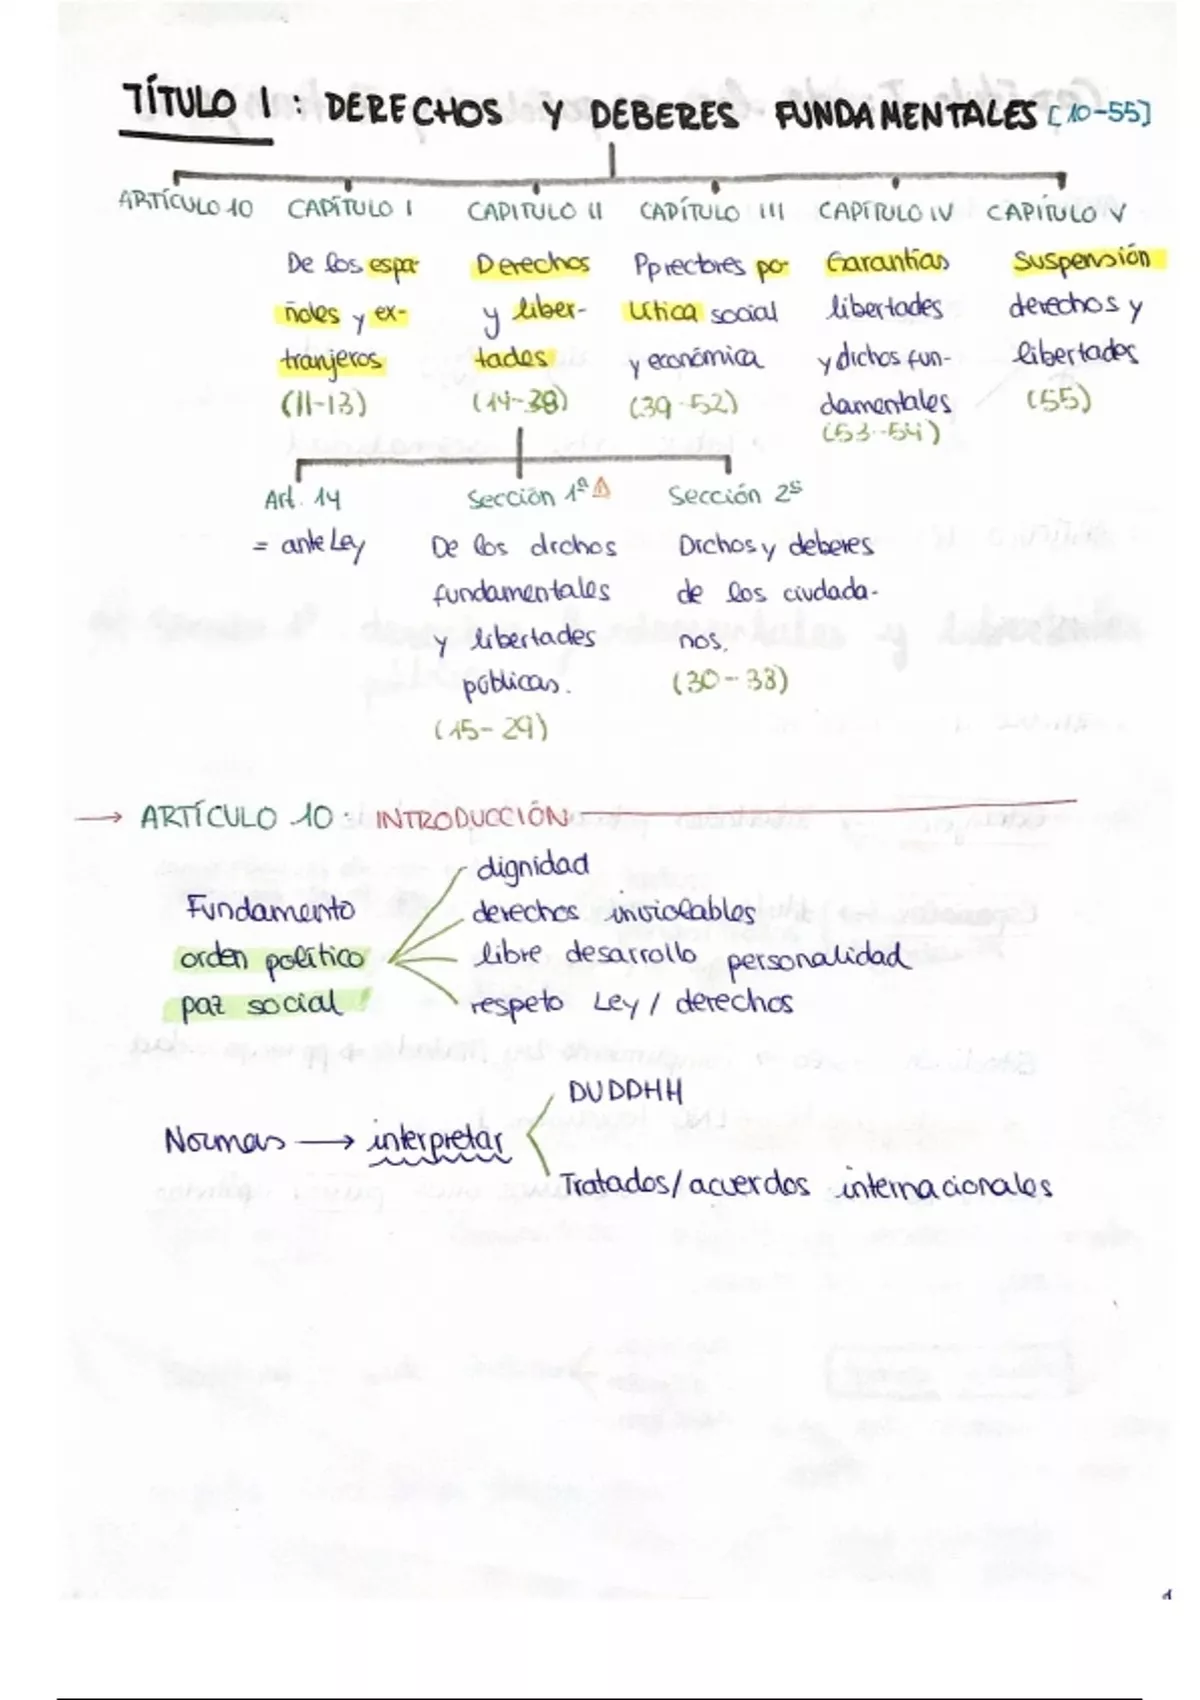 TÍTULO I : DERECHOS Y DEBERES FUNDAMENTALES [10-55]
ARTÍCULO 10
CAPÍTULO I
De los espa-
ñoles y ex-
tranjeros
(11-13)
CAPITULO II
Derechos
y liber-
tades
(14-38)
CAPÍTULO III
Pprectores po-
lítica social
y económica
(39-52)
CAPÍTULO IV
Garantías
libertades
y dichos fun-
damentales
(53-54)
CAPÍTULO V
Suspensión
derechos y
libertades
(55)
Art. 14
= ante Ley
Sección 1ª
De los drchos
fundamentales
y libertades
públicas.
(15-29)
Sección 2ª
Drchos y deberes
de los ciudada-
nos.
(30-38)
→ ARTÍCULO 10: INTRODUCCIÓN
Fundamento
orden político
paz social
dignidad
derechos inviolables
libre desarrollo personalidad
respeto Ley / derechos
Normas → interpretar
DUDDHH
Tratados/acuerdos internacionales
1